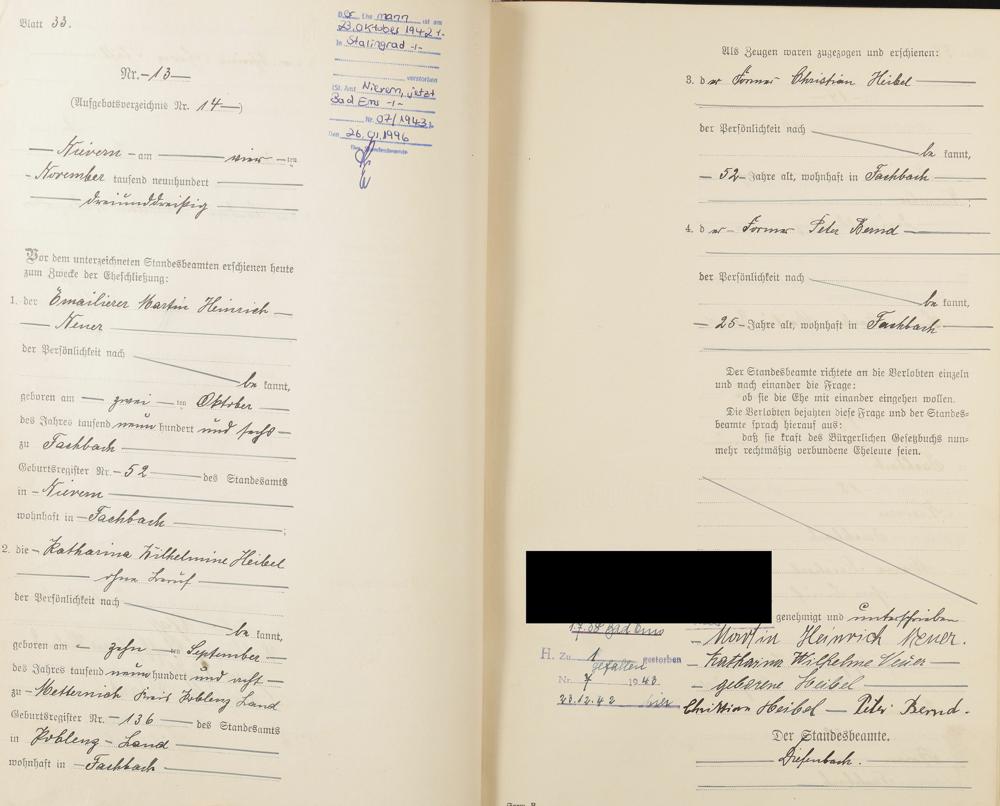 Blatt 33.
Nr. 13
(Aufgebotsverzeichnis Nr. 14)
Nievern am vier ten
November tausend neunhundert
dreiunddreißig
Vor dem unterzeichneten Standesbeamten erschienen heute
zum Zwecke der Eheschließung:
1. der Emailierer Martin Heinrich
Neuer
der Persönlichkeit nach
be kannt,
geboren am zwei ten Oktober
des Jahres tausend neun hundert und sechs
zu Fachbach
Geburtsregister Nr. 52 des Standesamts
in Nievern
wohnhaft in Fachbach ;
2. die Katharina Wilhelmine Heibel
ohne Beruf
der Persönlichkeit nach
be kannt,
geboren am zehn ten September
des Jahres tausend neun hundert und acht
zu Metternich Kreis Koblenz Land
Geburtsregister Nr. 136 des Standesamts
in Koblenz-Land
wohnhaft in Fachbach
Der Ehemann ist am
23. Oktober 1942 -/-
in Stalingrad -/-
verstorben
(St. Amt Nievern, jetzt
Bad Ems -/-
Nr. 07/1943)
Den 26.01.1996
Der Standesbeamte
Als Zeugen waren zugezogen und erschienen:
3. d er Former Christian Heibel
der Persönlichkeit nach
be kannt,
52 Jahre alt, wohnhaft in Fachbach
4. d er Former Peter Bernd
der Persönlichkeit nach
be kannt,
25 Jahre alt, wohnhaft in Fachbach
Der Standesbeamte richtete an die Verlobten einzeln
und nach einander die Frage:
ob sie die Ehe mit einander eingehen wollen.
Die Verlobten bejahten diese Frage und der Standes-
beamte sprach hierauf aus:
daß sie kraft des Bürgerlichen Gesetzbuchs nun-
mehr rechtmäßig verbundene Eheleute seien.
genehmigt und unterschrieben
Martin Heinrich Neuer.
Katharina Wilhelme Neuer
geborene Heibel
Christian Heibel – Peter Bernd.
Der Standesbeamte.
Diefenbach.
Bad Ems
H. Zu 1 gestorben
gefallen
Nr. 7 1943
23.12.42 hier